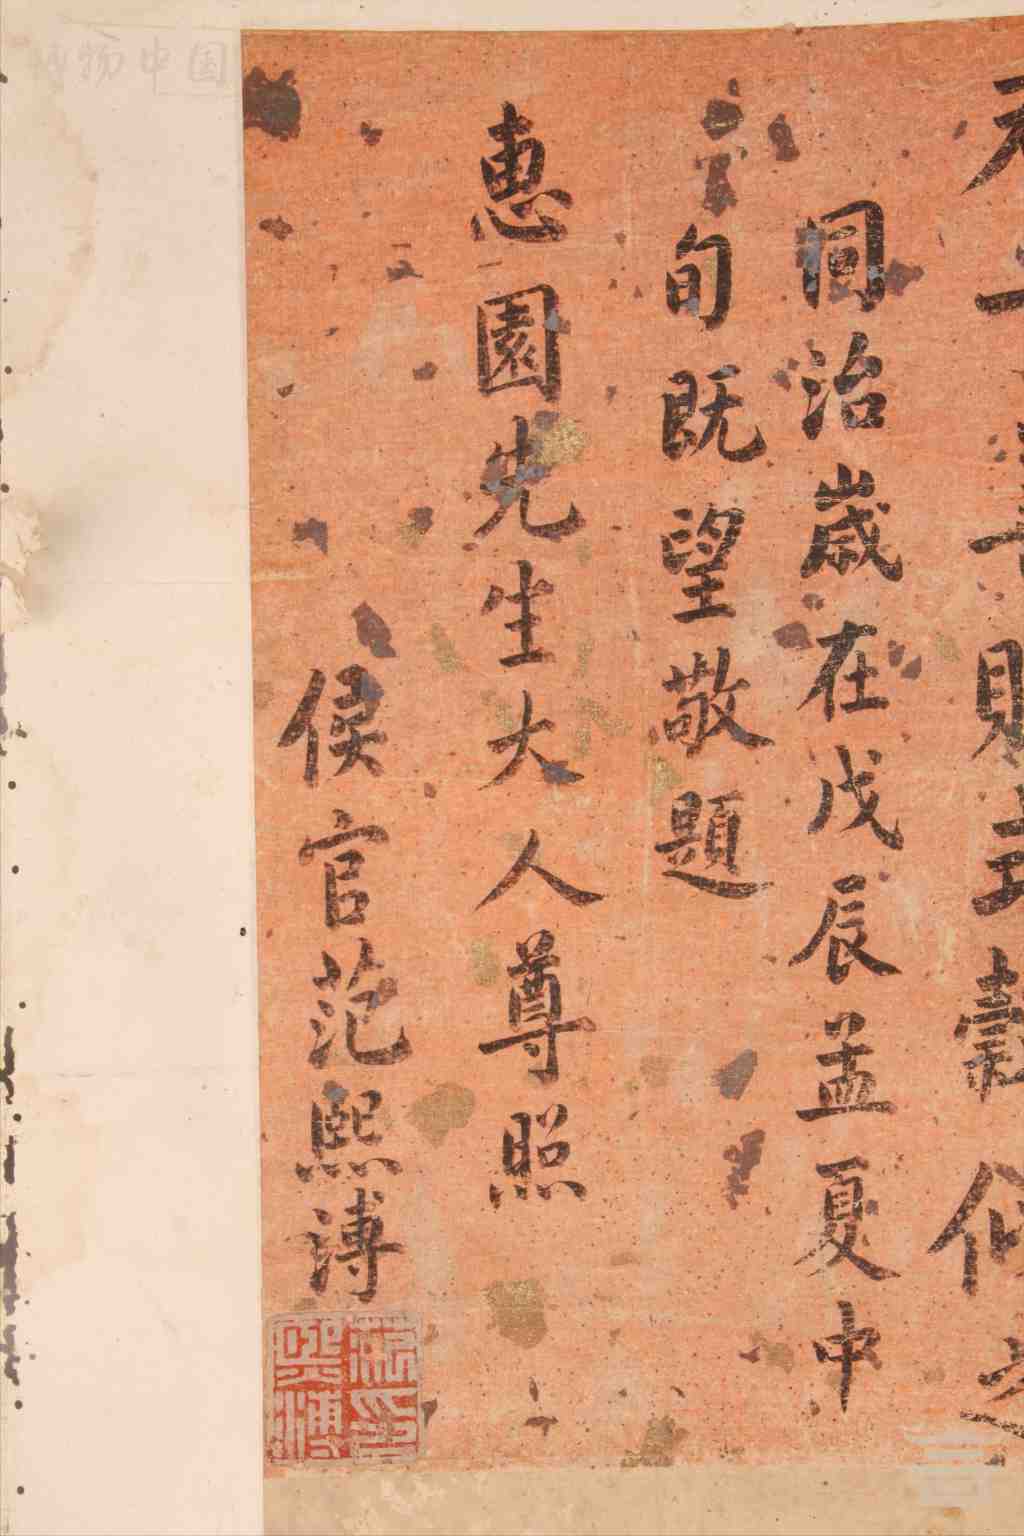 則式穀似之
同治歲在戊辰孟夏中
旬既望敬題
惠園先生大人尊照
侯官范熙溥
范印熙溥
博物中国